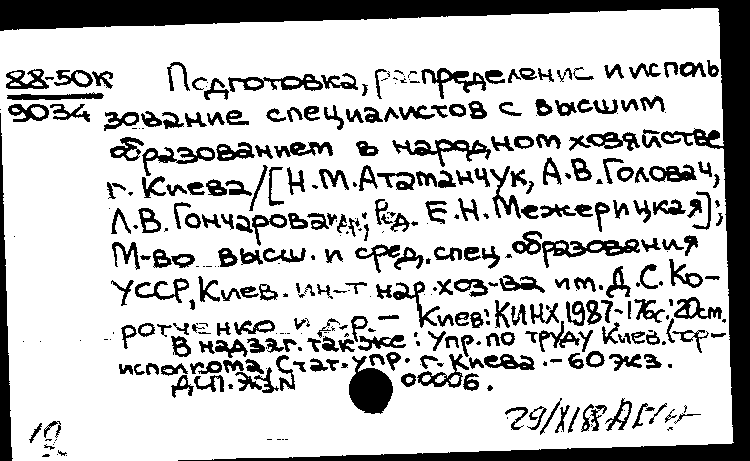 88-50к
9034
Подготовка, распределение и исполь
зование специалистов с высшим
образованием в народном хозяйстве
г. Киева / [Н.М.Атаманчук, А.В.Головач,
Л.В.Гончарова и др.; Ред. Е.Н.Межерицкая];
М-во высш. и сред. спец. образования
УССР, Киев. ин-т нар. хоз-ва им. Д.С.Ко-
ротченко и др. — Киев: КИНХ, 1987.-176с.; 20см.
В надзаг. также: Упр. по труду Киев. гор-
исполкома, Стат. упр. г. Киева. - 60 экз.
ДСП. Экз. N 00006.
29/XI88